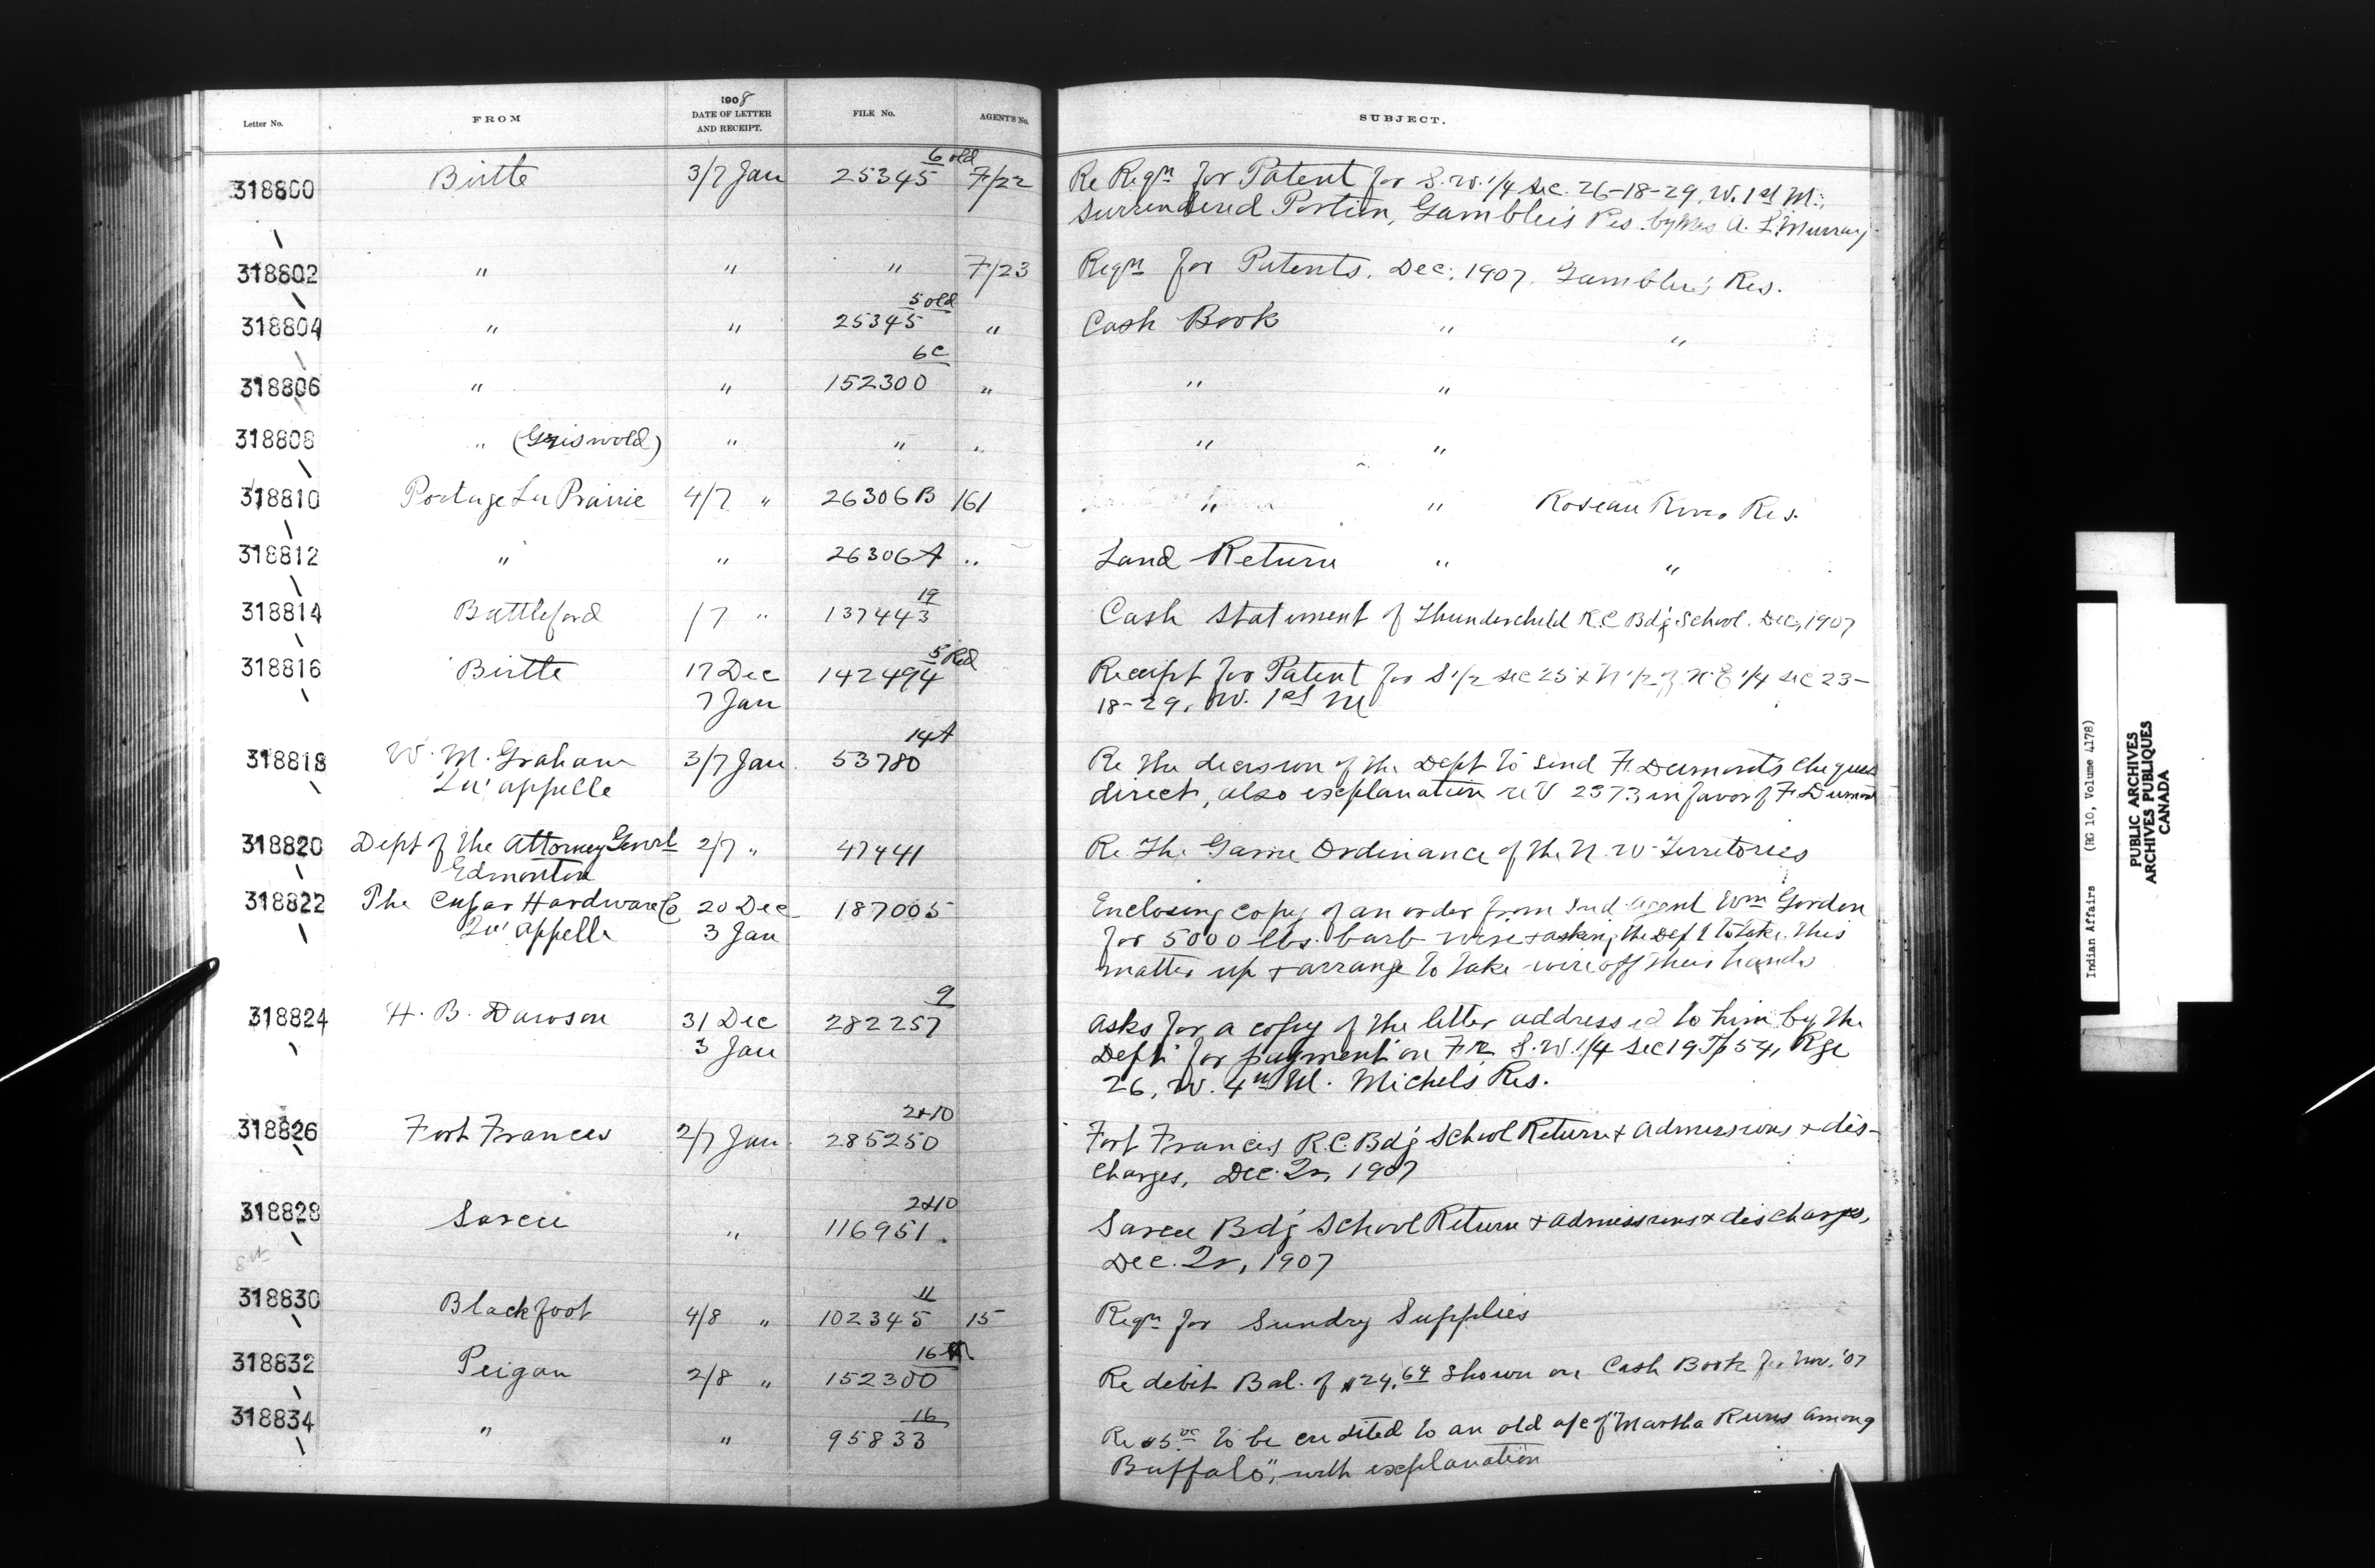 Letter No. FROM 1908 DATE OF LETTER AND RECEIPT. FILE No. AGENT'S No. SUBJECT.
318800 Birtle 3/7 Jan 25345 6 old 7/22 Re Reqn for Patent for S.W. 1/4 Sec. 26-18-29, W. 1st M.,
Surrendered Portion, Gamblers Res. by Mrs A. L. Murray
318802 " " " 7/23 Reqn for Patents. Dec. 1907. Gamblers Res.
318804 " " 25345 5 old " Cash Book " "
318806 " " 152300 6C " " "
318808 " (Griswold) " " " " "
318810 Portage La Prairie 4/7 " 26306B 161 " " Roseau River Res.
318812 " " 26306A " Land Return " "
318814 Battleford /7 " 137443 19 Cash Statement of Thunderchild R.C. Bdg School. Dec, 1907
318816 Birtle 17 Dec 142494 5 Red Receipt for Patent for S 1/2 Sec 25 & N 1/2 of N.E 1/4 Sec 23-
7 Jan 18-29, W. 1st M
318818 W. M. Graham 3/7 Jan. 53780 14A Re the decision of the Dept to send F. Dumont's cheques
Qu'appelle direct, also explanation re V 2373 in favor of F Dumont
318820 Dept of the Attorney Genrl 2/7 " 47441 Re the Game Ordinance of the N.W. Territories
Edmonton
318822 The Cupar Hardware Co 20 Dec 187005 Enclosing copy of an order from Ind. Agent Wm Gordon
Qu'appelle 3 Jan for 5000 lbs. barb wire & asking the Dept to take this
matter up & arrange to take wire off their hands
318824 H. B. Dawson 31 Dec 282257 9 Asks for a copy of the letter addressed to him by the
3 Jan Dept for payment on Fr. S.W. 1/4 Sec 19 Tp 54, Rge
26, W. 4th M. Michels Res.
318826 Fort Frances 2/7 Jan. 285250 2&10 Fort Frances R.C. Bdg School Return & Admissions & dis-
charges, Dec. Qr, 1907
318828 Sarcee " 116951 2&10 Sarcee Bdg School Return & Admissions & discharges,
Dec. Qr, 1907
318830 Blackfoot 4/8 " 102345 11 15 Reqn for Sundry Supplies
318832 Peigan 2/8 " 152300 16 Re debit Bal. of $24.64 shown on Cash Book for Nov. '07
318834 " " 95833 16 Re $5.00 to be credited to an old a/c of "Martha Runs Among
Buffalo", with explanation
Indian Affairs (RG 10, Volume 4178)
PUBLIC ARCHIVES
ARCHIVES PUBLIQUES
CANADA